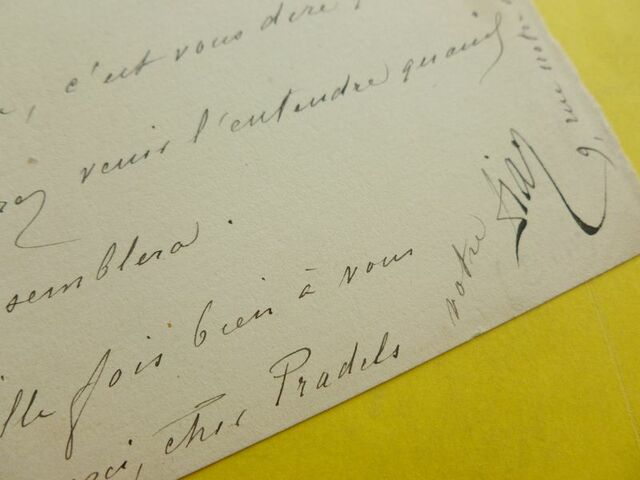 , c'est vous dire
venir l'entendre quand
semblera.
ille fois bien à vous
ci, cher Pradels votre
9, rue